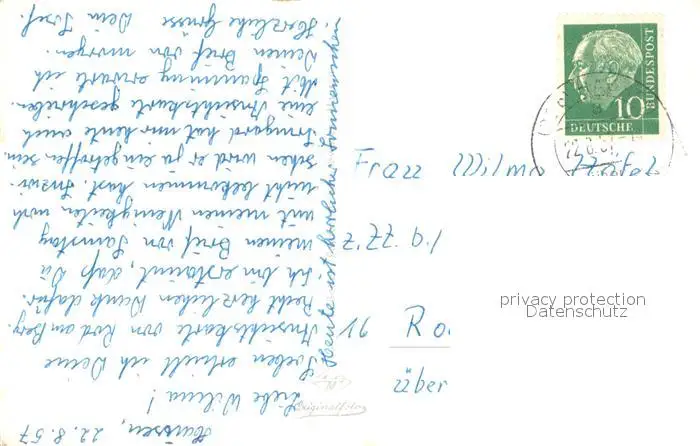 Haussen, 22.8.57
Liebe Wilma!
Soeben erhielt ich Deine
Ansichtskarte von Rod am Berg.
Recht herzlichen Dank dafür.
Ich bin erstaunt, daß Du
meinen Brief von Samstag
mit meinen Neuigkeiten noch
nicht bekommen hast. Inzwi-
schen wird er ja eingetroffen sein.
Irmgard hat mir heute auch
eine Ansichtskarte geschrieben.
Mit Spannung erwarte ich
Deinen Brief von morgen.
Herzliche Grüsse Dein Josef.
Heute ist herrlicher Sonnenschein.
Originalfoto
10
DEUTSCHE
BUNDESPOST
22.8.57
Frau Wilma
z. Zt. b./
16 Ro
über
privacy protection
Datenschutz